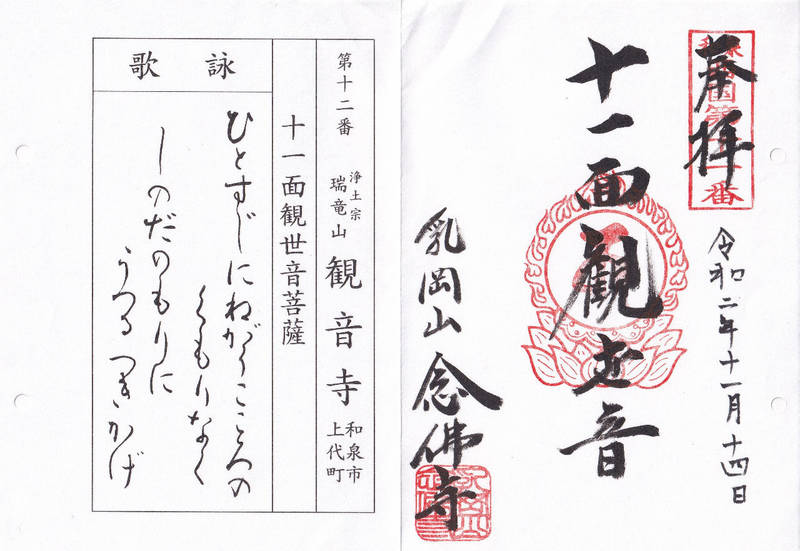 奉拝
令和二年十一月十四日
十一面観世音
乳岡山 念佛寺
第十二番
浄土宗
瑞竜山
観音寺
和泉市
上代町
十一面観世音菩薩
詠歌
ひとすじにねがうこころの
くもりなく
しのだのもりに
うつるつきかげ